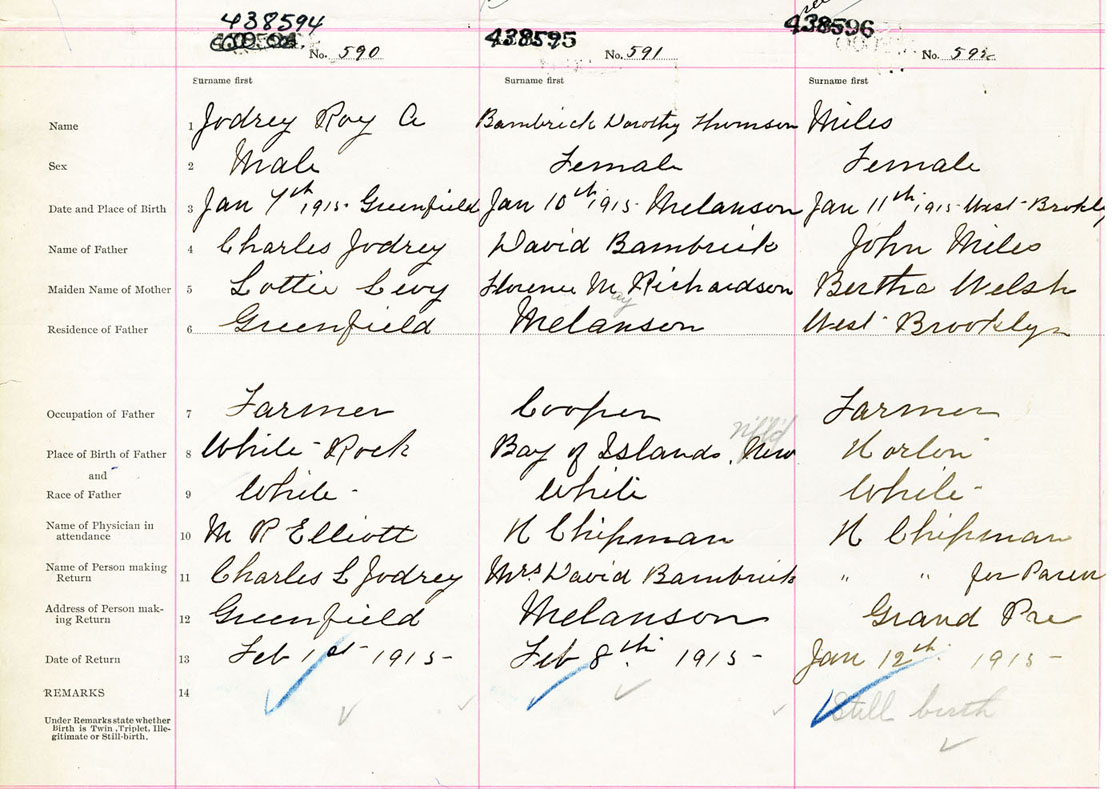 438594 438595 438596
No. 590 No. 591 No. 592
Surname first Surname first Surname first
Name 1 Jodrey Roy A Bambrick Dorothy Thomson Miles
Sex 2 Male Female Female
Date and Place of Birth 3 Jan 7th 1915- Greenfield Jan 10th 1915- Melanson Jan 11th 1915- West-Brookly
Name of Father 4 Charles Jodrey David Bambrick John Miles
Maiden Name of Mother 5 Lottie Levy Florence May Richardson Bertha Welsh
Residence of Father 6 Greenfield Melanson West- Brooklyn
Occupation of Father 7 Farmer Cooper Farmer
nfl'd
Place of Birth of Father 8 White-Rock Bay of Islands, New Horton
and
Race of Father 9 White- White White-
Name of Physician in
attendance 10 M R Elliott H Chipman H Chipman
Name of Person making
Return 11 Charles L Jodrey Mrs David Bambrick " " for Paren
Address of Person mak-
ing Return 12 Greenfield Melanson Grand Pre
Date of Return 13 Feb 1st- 1915- Feb 8th 1915- Jan 12th 1915-
REMARKS 14 Still birth
Under Remarks state whether
Birth is Twin, Triplet, Ille-
gitimate or Still-birth.